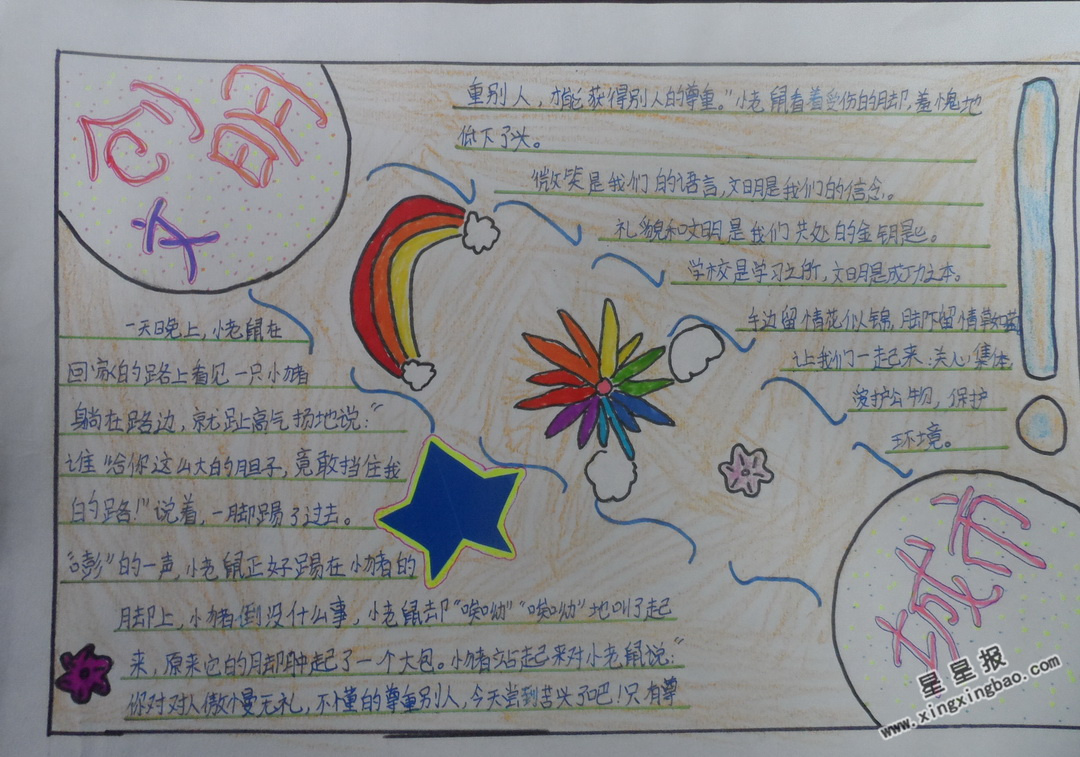 创
文明
一天晚上，小老鼠在
回家的路上看见一只小猪
躺在路边，就趾高气扬地说：“
谁“给你这么大的胆子，竟敢挡住我
的路！”说着，一脚踢了过去。
“嘭”的一声，小老鼠正好踢在小猪的
脚上，小猪倒没什么事，小老鼠却“唉呦”“唉呦”地叫了起
来，原来它的脚肿起了一个大包。小猪站起来对小老鼠说：“
你对对人傲慢无礼，不懂的尊重别人，今天尝到苦头了吧！只有尊
重别人，才能获得别人的尊重。”小老鼠看着受伤的脚，羞愧地
低下了头。
微笑是我们的语言，文明是我们的信念。
礼貌和文明是我们共处的金钥匙。
学校是学习之所，文明是成功之本。
手边留情花似锦，脚下留情草如茵
让我们一起来：关心集体
爱护公物，保护
环境。
城市
星星报
www.xingxingbao.com